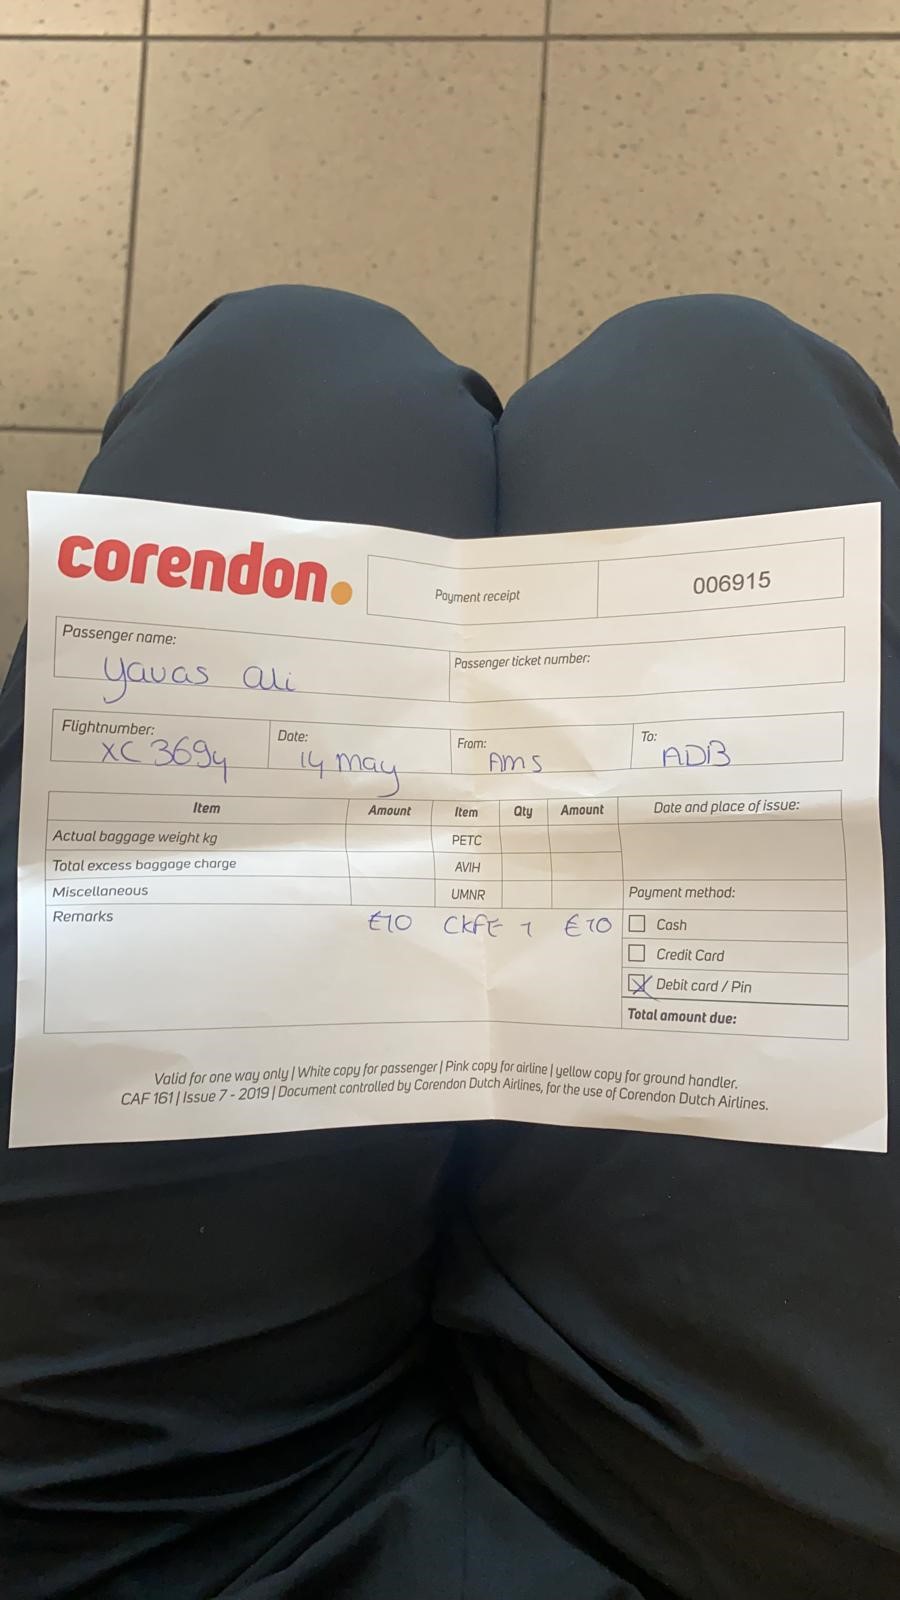 corendon.
Payment receipt
006915
Passenger name:
Yavas Ali
Passenger ticket number:
Flightnumber:
XC 3694
Date:
14 May
From:
AMS
To:
ADB
Item Amount Item Qty Amount Date and place of issue:
Actual baggage weight kg PETC
Total excess baggage charge AVIH
Miscellaneous UMNR Payment method:
Remarks €10 CKFE 1 €10 Cash
Credit Card
Debit card / Pin
Total amount due:
Valid for one way only | White copy for passenger | Pink copy for airline | yellow copy for ground handler.
CAF 161 | Issue 7 - 2019 | Document controlled by Corendon Dutch Airlines, for the use of Corendon Dutch Airlines.